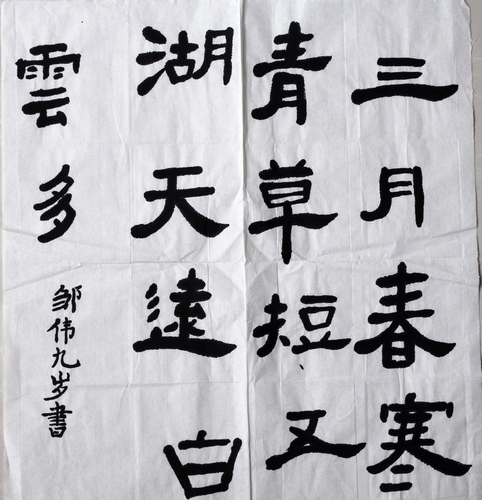 三月春寒
青草短五
湖天遠白
雲多
邹伟九岁書